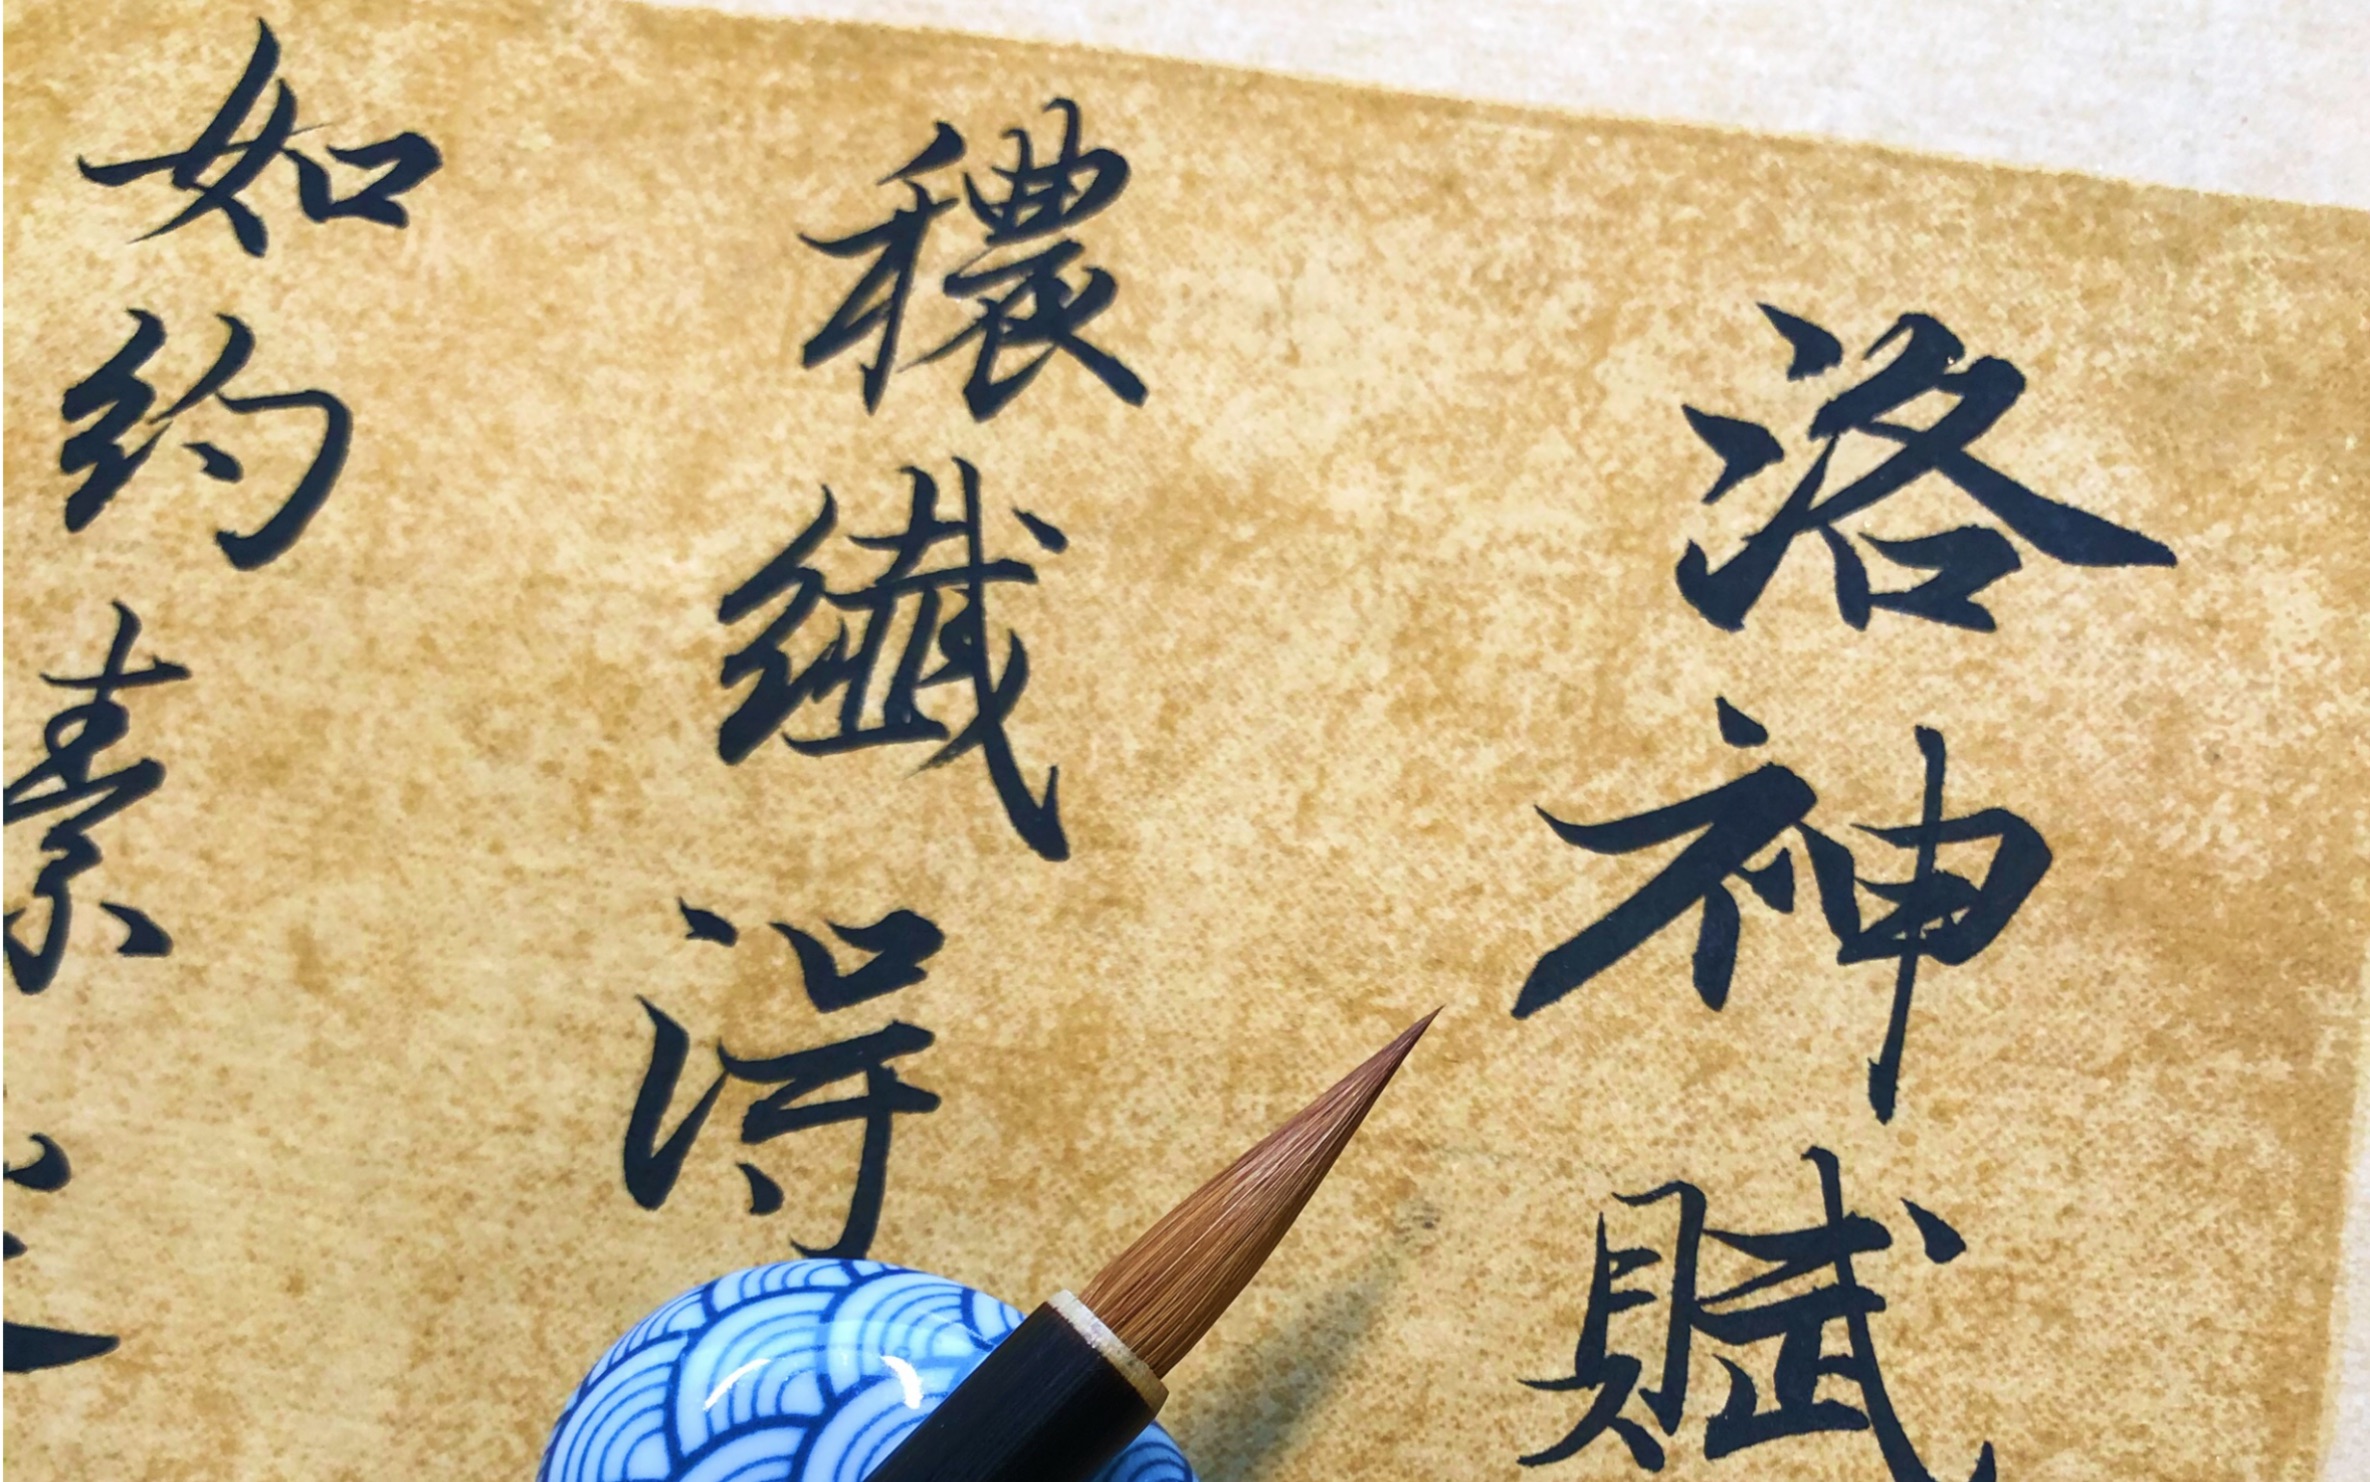 洛神賦
穠纖得
如約素